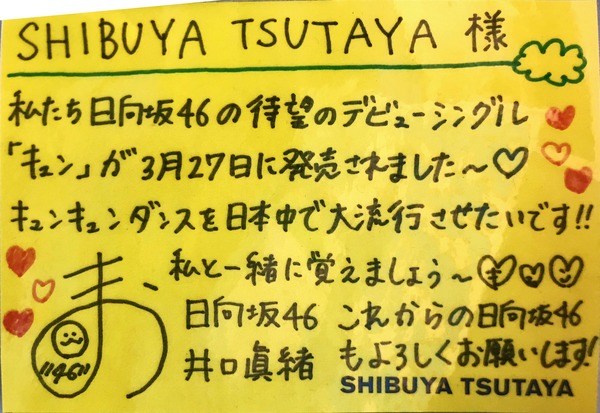 SHIBUYA TSUTAYA 様
私たち日向坂46の待望のデビューシングル
「キュン」が3月27日に発売されました〜♡
キュンキュンダンスを日本中で大流行させたいです!!
私と一緒に覚えましょう〜
日向坂46 これからの日向坂46
井口眞緒 もよろしくお願いします!
ま
"46"
SHIBUYA TSUTAYA